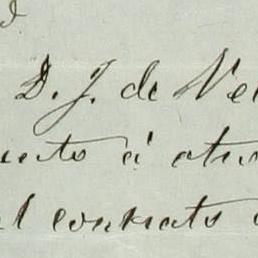 D. J. de Ve
uento á otro
l contrato